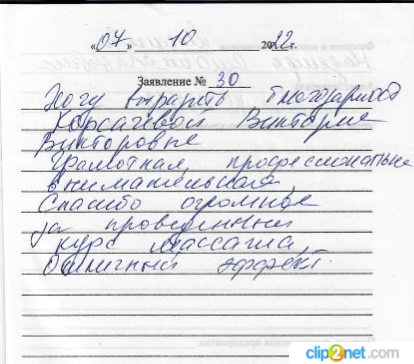 «07» 10 2022г.
Заявление № 30
Хочу выразить благодарность
Корсачевой Виктории
Викторовне
Грамотная, профессиональная
внимательная,
Спасибо огромное
за проведенный
курс массажа,
Отличный эффект.
clip2net.com